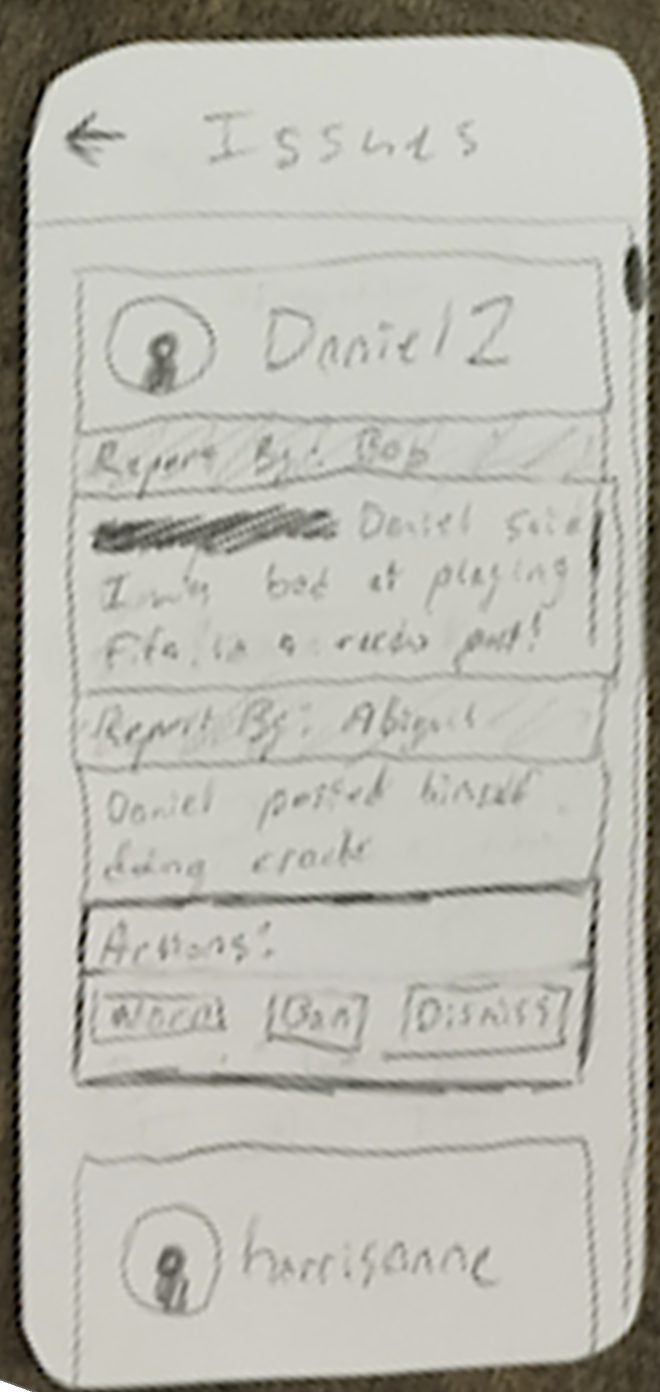 ← Issues
Daniel Z
Report By: Bob
Daniel said
I was bad at playing
Fifa in a recent post!
Report By: Abigail
Daniel posted himself
doing crack
Actions:
Warn Ban Dismiss
harrisanne